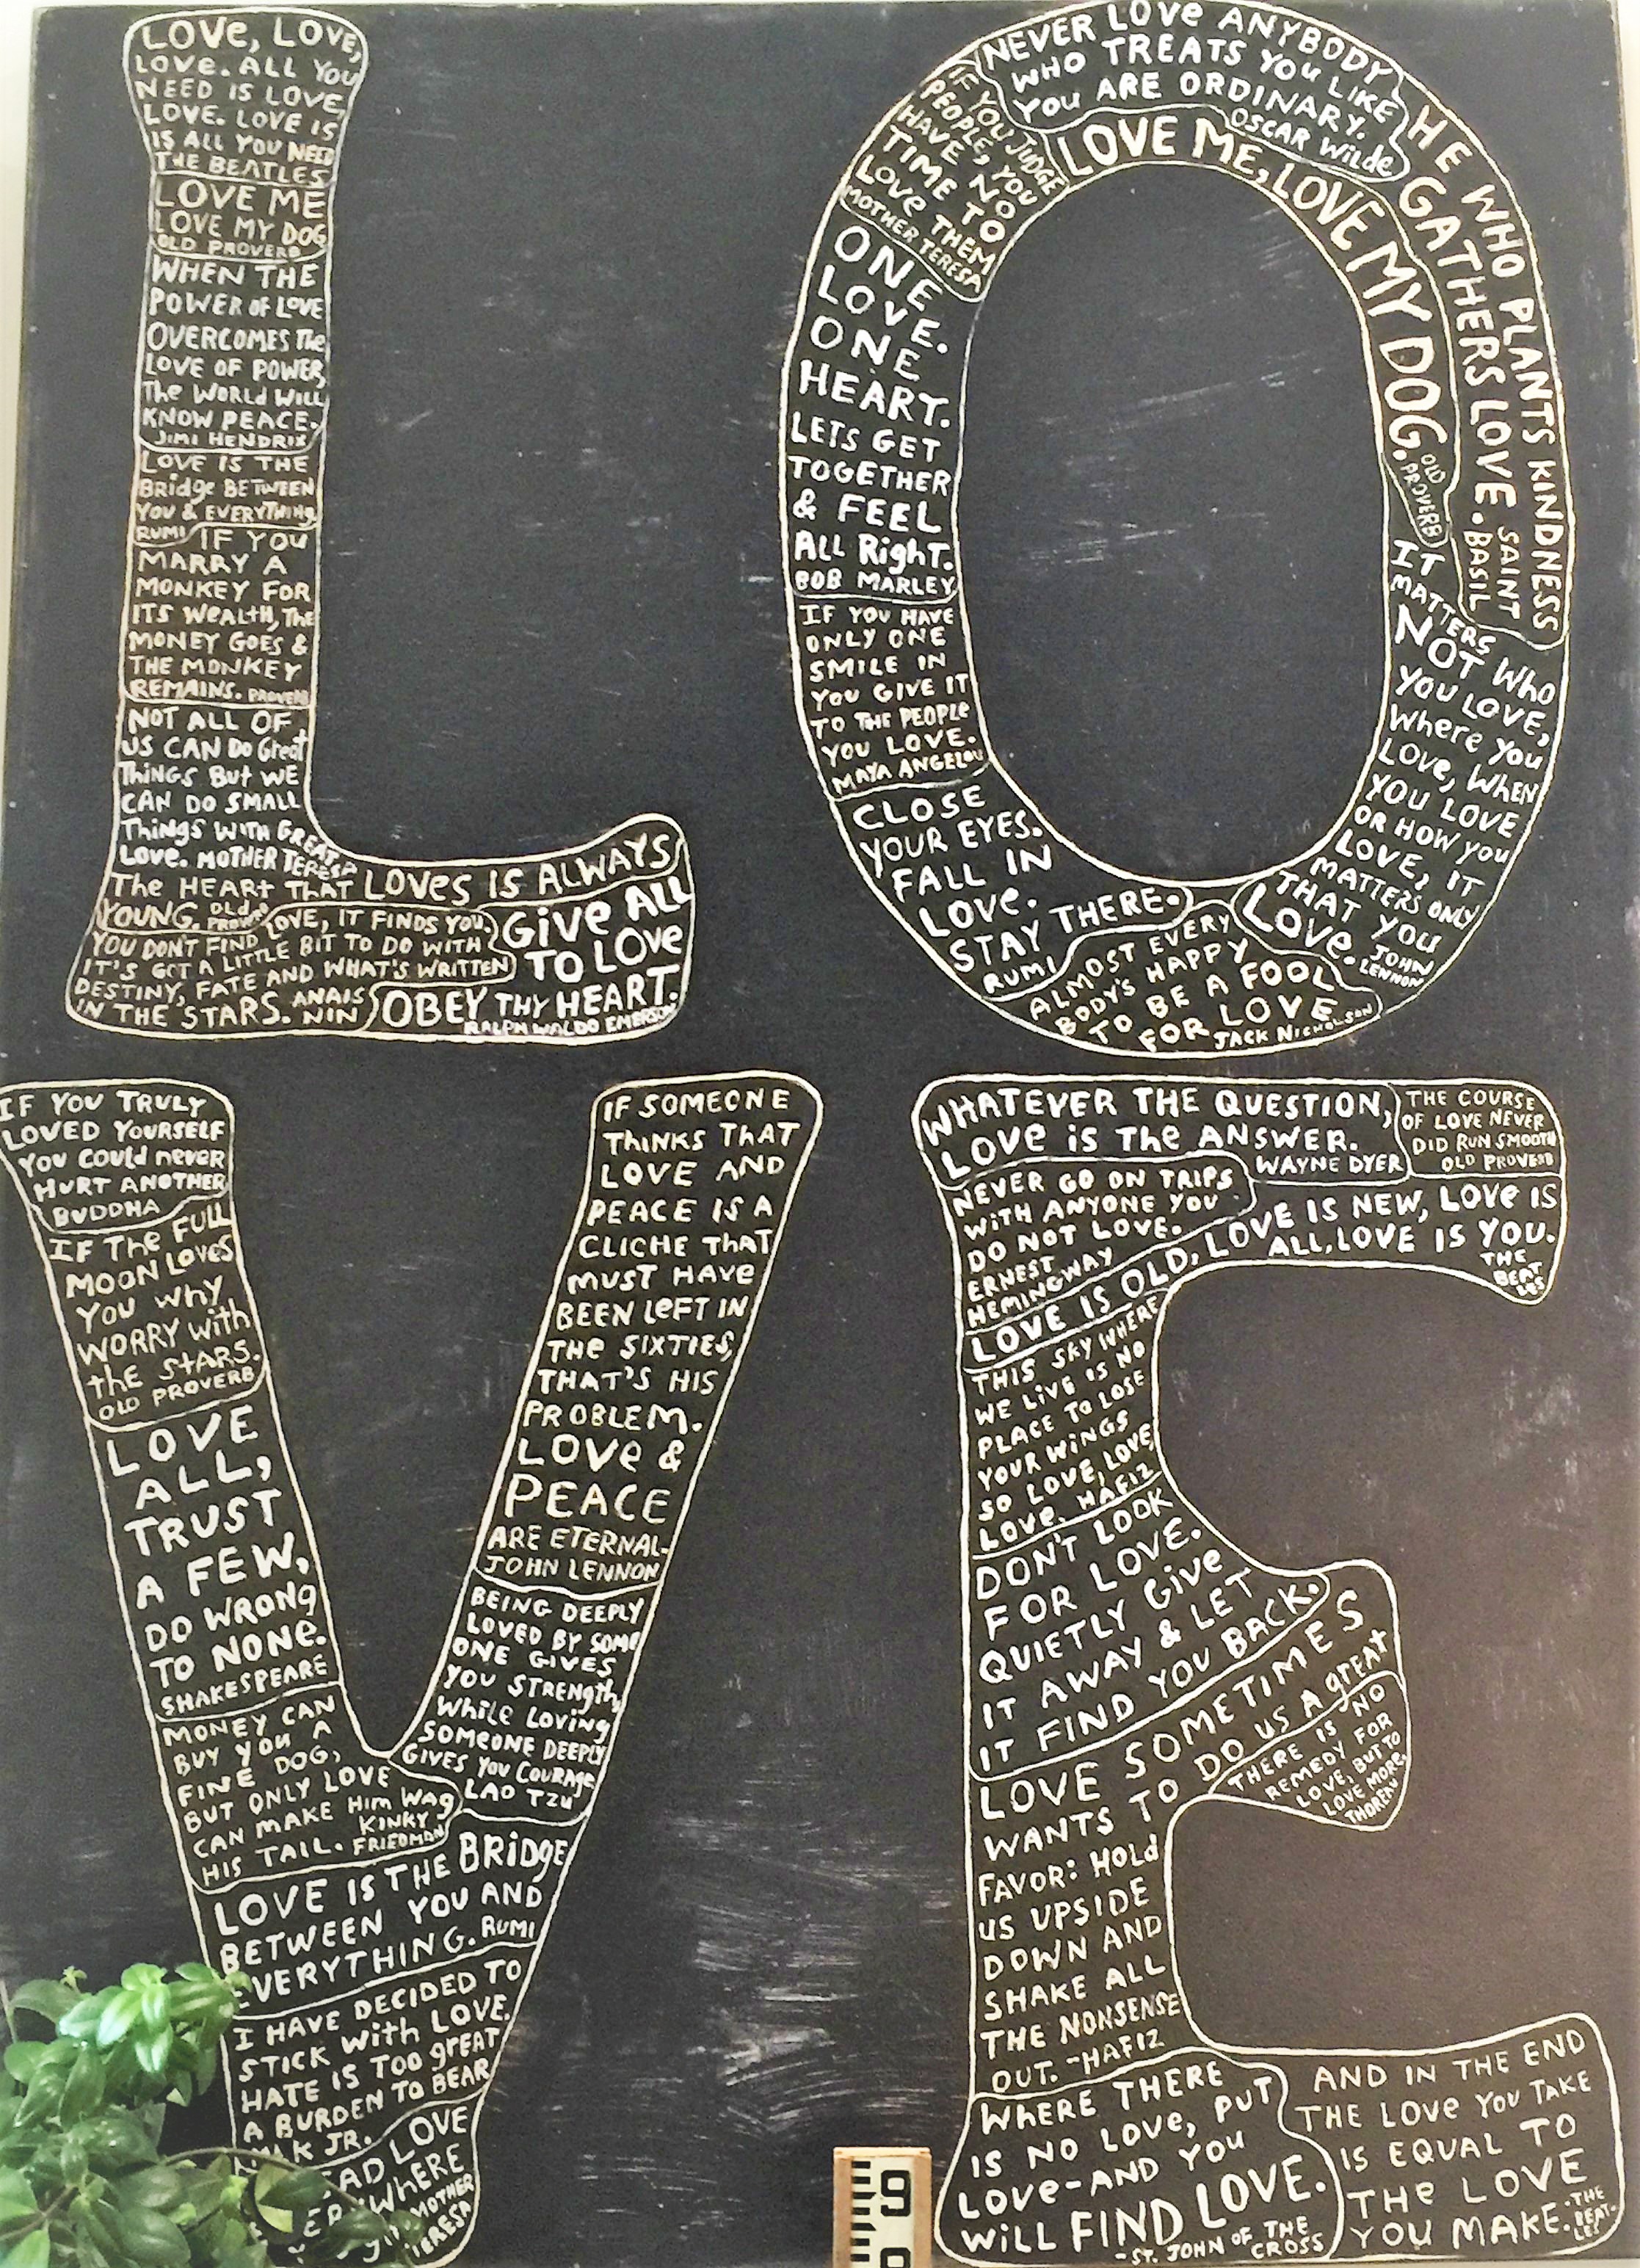 LOVe, LOVE,
LOVe. ALL YOU
NEED IS LOVE,
LOVE. LOVE IS
IS ALL YOU NEED
THE BEATLES
LOVE ME
LOVE MY DOG
OLD PROVERB
WHEN THE
POWER OF LOVE
OVERCOMES THe
LOVE OF POWER,
The WORLD WILL
KNOW PEACE.
JIMI HENDRIX
LOVE IS THE
BRidge BETWEEN
YOU & EVERYTHING
RUMI IF YOU
MARRY A
MONKEY FOR
ITS WeaLtH, THe
MONEY GOES &
THE MONKEY
REMAINS. PROVERB
NOT ALL OF
US CAN DO Great
THiNGS BUt WE
CAN DO SMALL
THiNGS WiTH GREAT
LOVe. MOTHER TERESA
The HEARt THAT LOVes IS ALWAYS
YOUNG. OLD PROV.
LOVE, IT FINDS YOU.
YOU DON'T FIND
IT'S GOT A LITTLE BIT TO DO WITH
DESTINY, FATE AND WHAT'S WRITTEN
IN THE STARS. ANAIS NIN
GiVe ALL
TO LOVe
OBEY THY HEART.
RALPH WALDO EMERSON
NEVER LOVe ANYBODY
WHO TREATS YOU LIKE
YOU ARE ORDINARY.
OSCAR WiLde
IF YOU JUDGE
PEOPLE, YOU
HAVE NO
TIME TO
LOVe THEM
MOTHER TERESA
LOVE ME, LOVE MY DOG.
OLD PROVERB
HE WHO PLANTS KINDNESS
GATHERS LOVE. SAINT BASIL
ONE
LOVE.
ONE
HEART.
LETS GET
TOGETHER
& FEEL
ALL RigHT.
BOB MARLEY
IF YOU HAVE
ONLY ONE
SMILE IN
YOU GIVE IT
TO THE PEOPLe
YOU LOVE.
MAYA ANGELOU
CLOSE
YOUR EYES.
FALL IN
LOVE.
STAY THERE.
RUMI
ALMOST EVERY
BODY'S HAPPY
TO BE A FOOL
FOR LOVE
JACK NICHOLSON
IT
MATTERS
NOT WHO
YOU LOVE,
WHere YOU
LOVe, WHEN
YOU LOVE
OR HOW YOU
LOVE, IT
MATTERS ONLY
THAT YOU
LOVe. JOHN
LENNON
IF YOU TRULY
LOVED YOURSELF
YOU COULD neveR
HURT ANOTHER
BUDDHA
IF THe FULL
MOON LOVeS
YOU WHY
WORRY WitH
tHe StARS.
OLD PROVERB
LOVE
ALL,
TRUST
A FEW,
DO WRONG
TO NONE.
SHAKESPEARE
MONEY CAN
BUY YOU A
FINE DOG,
BUT ONLY LOVE
CAN MAKE Him WAG
HIS TAIL. KINKY
FRIEDMAN
LOVE IS THE BRiDGE
BETWEEN YOU AND
EVERYTHING. RUMI
I HAVE DECIDED TO
STICK WitH LOVE.
HATE IS TOO gREAT
A BURDEN TO BEAR
JR.
LOVE
MOTHER
TERESA
IF SOMEONE
THiNKS THAT
LOVE AND
PEACE IS A
CLICHE THAT
MUST HAVe
BEEN LeFT IN
THe SIXTIES,
THAT'S HIS
PROBLEM.
LOVe &
PEACE
ARE ETERNAL-
JOHN LENNON
BEING DEEPLY
LOVED BY SOME
ONE GIVES
YOU STRENGTH,
WHiLe LOViNG
SOMEONE DEEPLY
GIVES YOU COURAGE
LAO TZU
WHATEVER THE QUESTION,
LOVe iS THe ANSWER.
WAYNE DYER
THE COURSE
OF LOVE NEVER
DID RUN SMOOTH
OLD PROVERB
NEVER GO ON TRIPS
WiTH ANYONE YOU
DO NOT LOVE.
ERNEST
HEMINGWAY
LOVE IS OLD, LOVE IS NEW, LOVe IS
ALL, LOVE IS YOU.
THE
BEAT
LES
THIS SKY WHERE
WE LiVE IS NO
PLACE TO LOSE
YOUR WiNGS
SO LOVE, LOVE,
LOVe. HAFIZ
DON'T LOOK
FOR LOVE.
QUIETLY Give
IT AWAY & LET
IT FIND YOU BACK.
LOVE SOMETIMES
WANTS TO DO US A gREAt
FAVOR: HOLd
US UPSIDE
DOWN AND
SHAKE ALL
THE NONSENSE
OUT. -HAFIZ
THERE IS NO
REMEDY FOR
LOVE, BUT TO
LOVE MORE.
THOREAU
WHERE THERE
IS NO LOVe, PUT
LOVe-AND YOU
WiLL FIND LOVE.
-ST. JOHN OF THE
CROSS
AND IN THE END
THE LOVe YOU TAKE
IS EQUAL TO
THe LOVE
YOU MAKE. -THE
BEAT-
LES
9